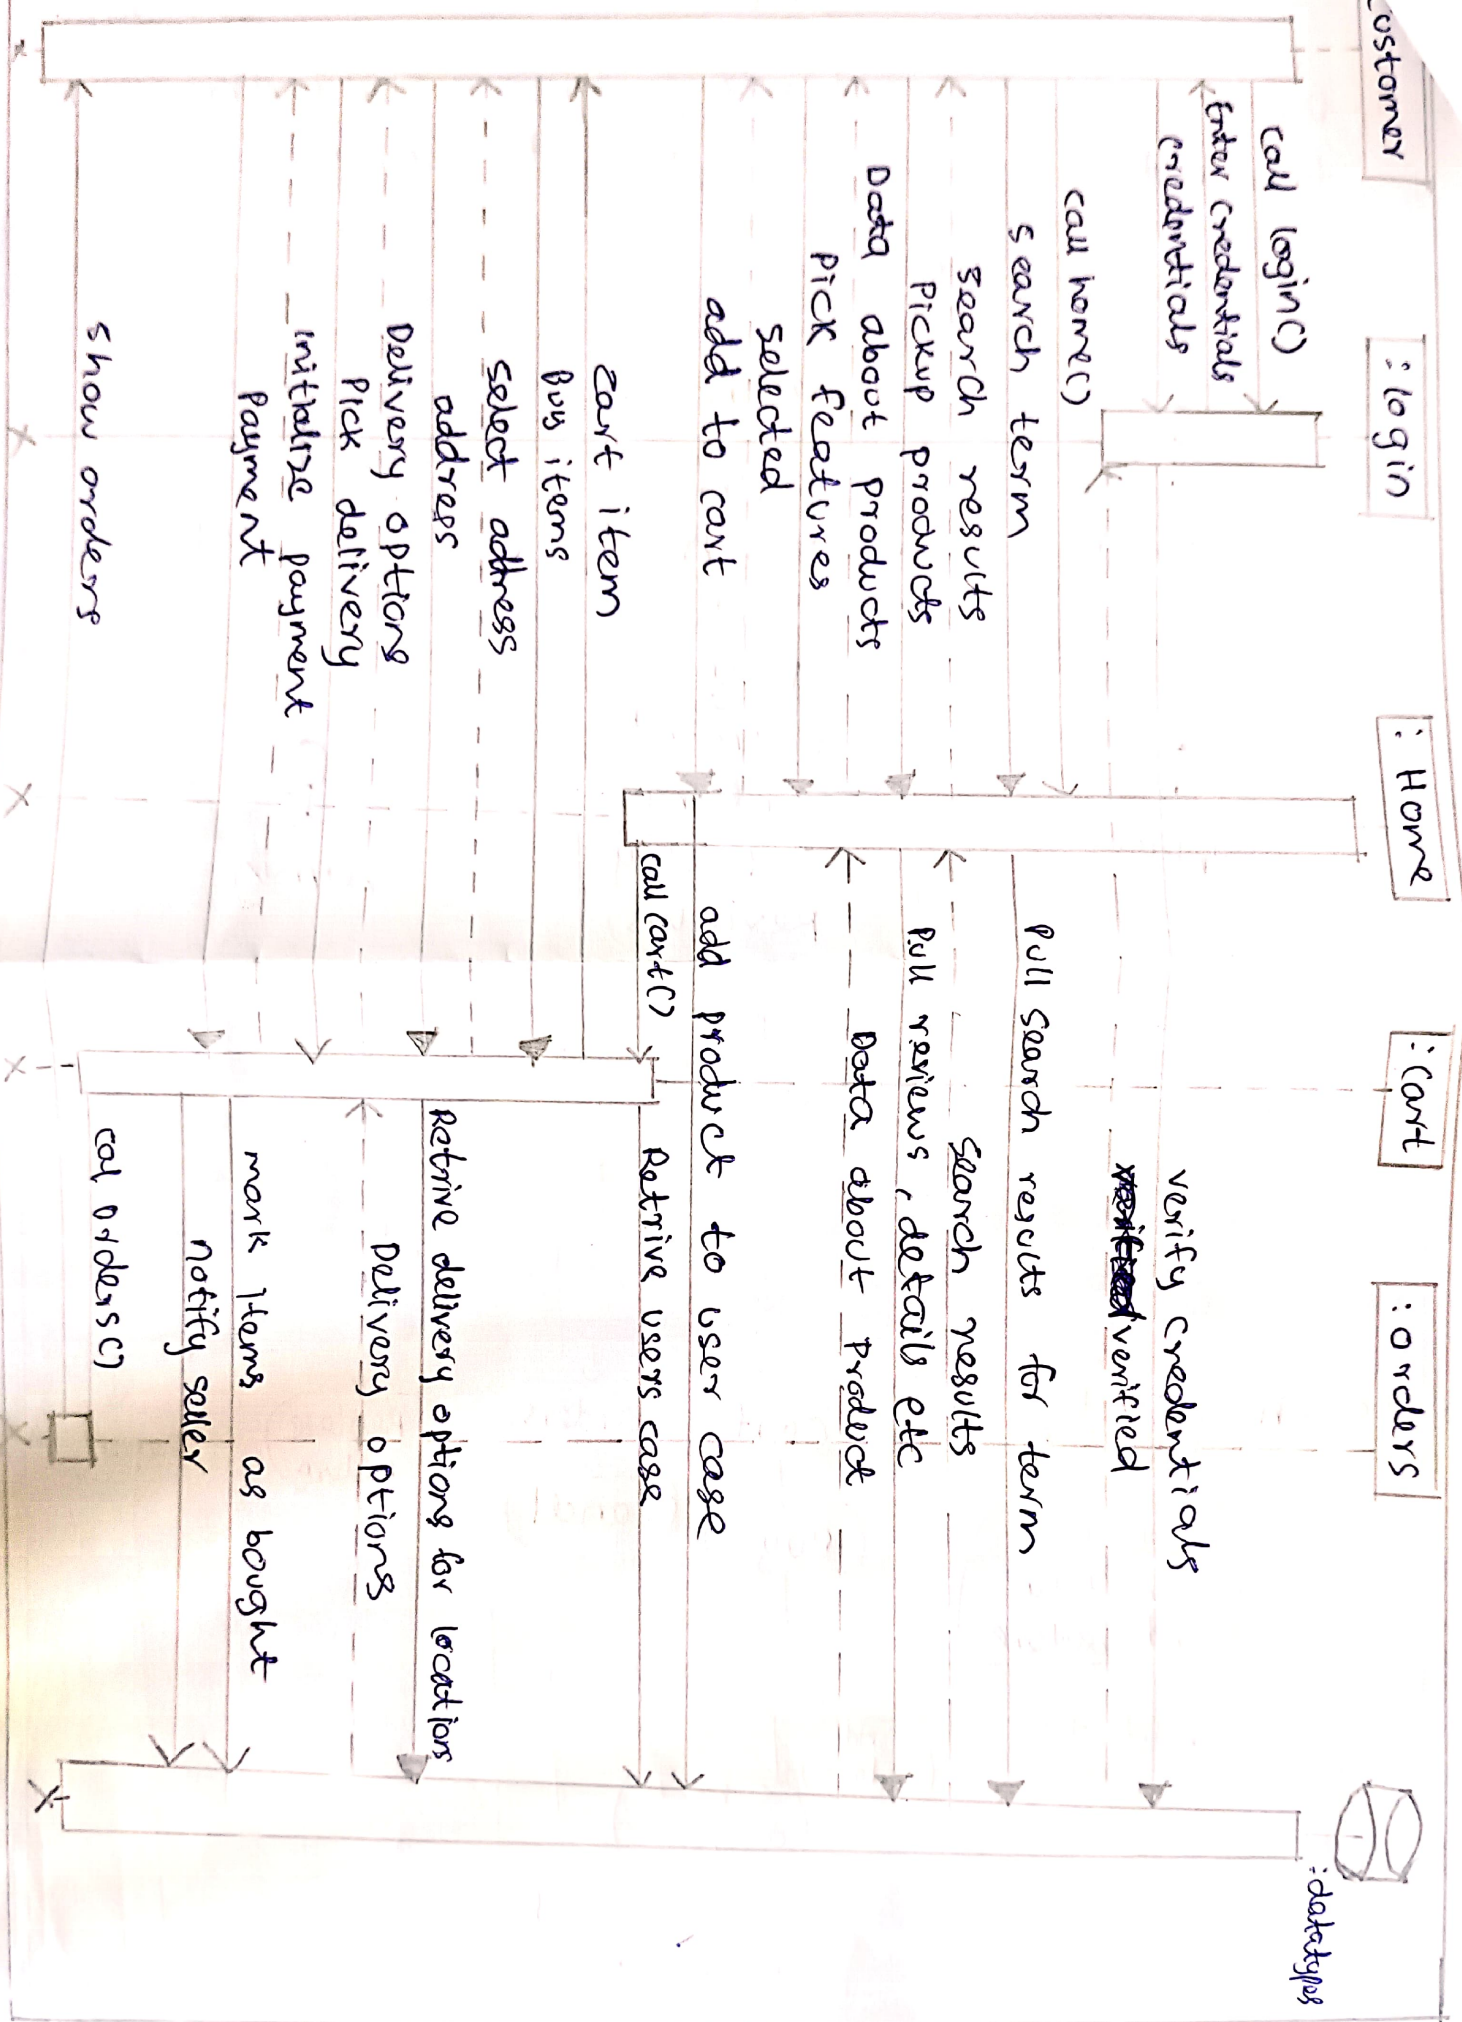 Customer
: login
: Home
: Cart
: orders
: datatypes
call login()
Enter credentials
credentials
verify credentials
verified
call home()
search term
Pull search results for term
search results
search results
Pickup products
Pull reviews, details etc
Data about products
Data about Product
Pick features
selected
add to cart
add product to user case
call cart()
Retrive users case
cart item
Buy items
select address
address
Retrive delivery options for locations
Delivery options
Delivery options
Pick delivery
Initialize payment
Payment
mark items as bought
notify seller
cal orders()
show orders